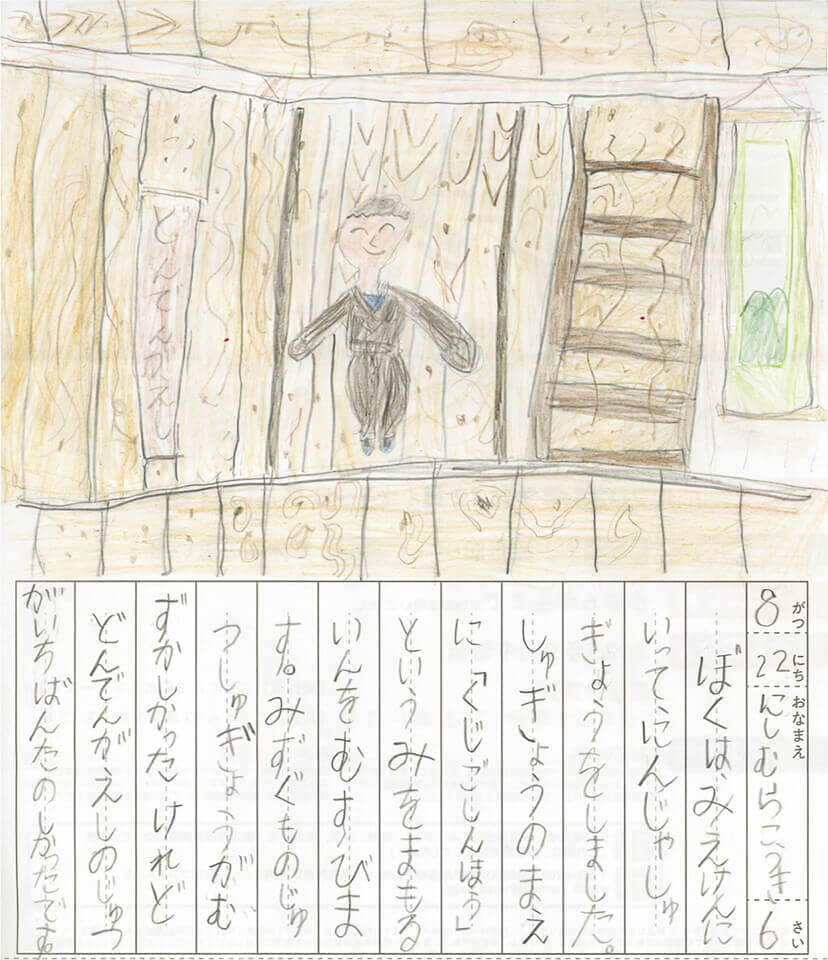 どんでんがえし
8がつ22にちおなまえにしむらこうき6さい
ぼくは、みえけんに
いってにんじゃしゅ
ぎょうをしました。
しゅぎょうのまえ
に「くじごしんほう」
というみをまもる
いんをむすびま
す。みずぐものじゅ
つしゅぎょうがむ
ずかしかったけれど
どんでんがえしのじゅつ
がいちばんたのしかったです